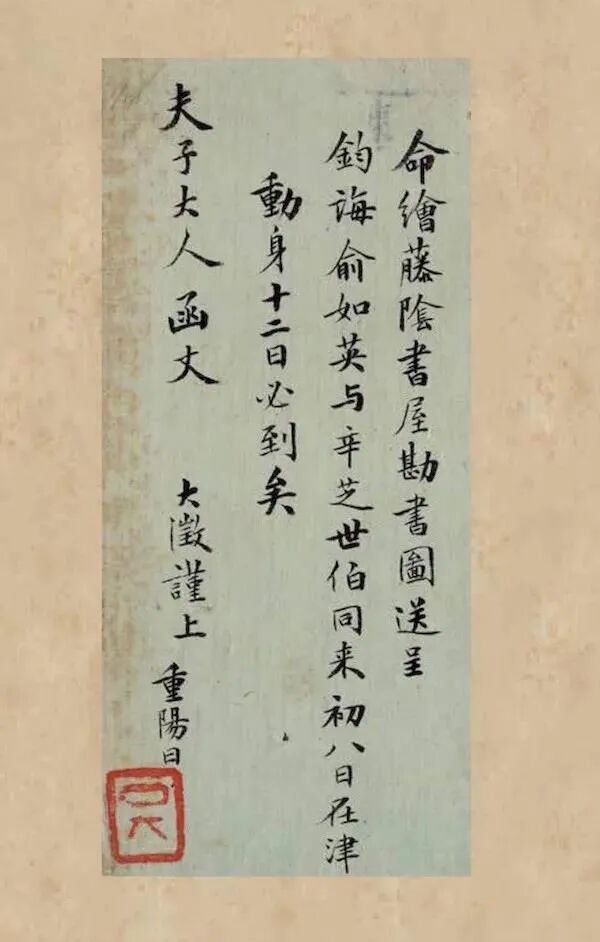 命繪藤陰書屋勘書圖送呈
鈞誨俞如英与辛芝世伯同来初八日在津
動身十二日必到矣
夫子大人函丈
大澂謹上
重陽日